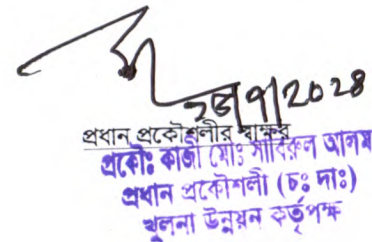 ২৩/৭/2024
প্রধান প্রকৌশলীর স্বাক্ষর
প্রকৌঃ কাজী মোঃ সাবিরুল আলম
প্রধান প্রকৌশলী (চঃ দাঃ)
খুলনা উন্নয়ন কর্তৃপক্ষ